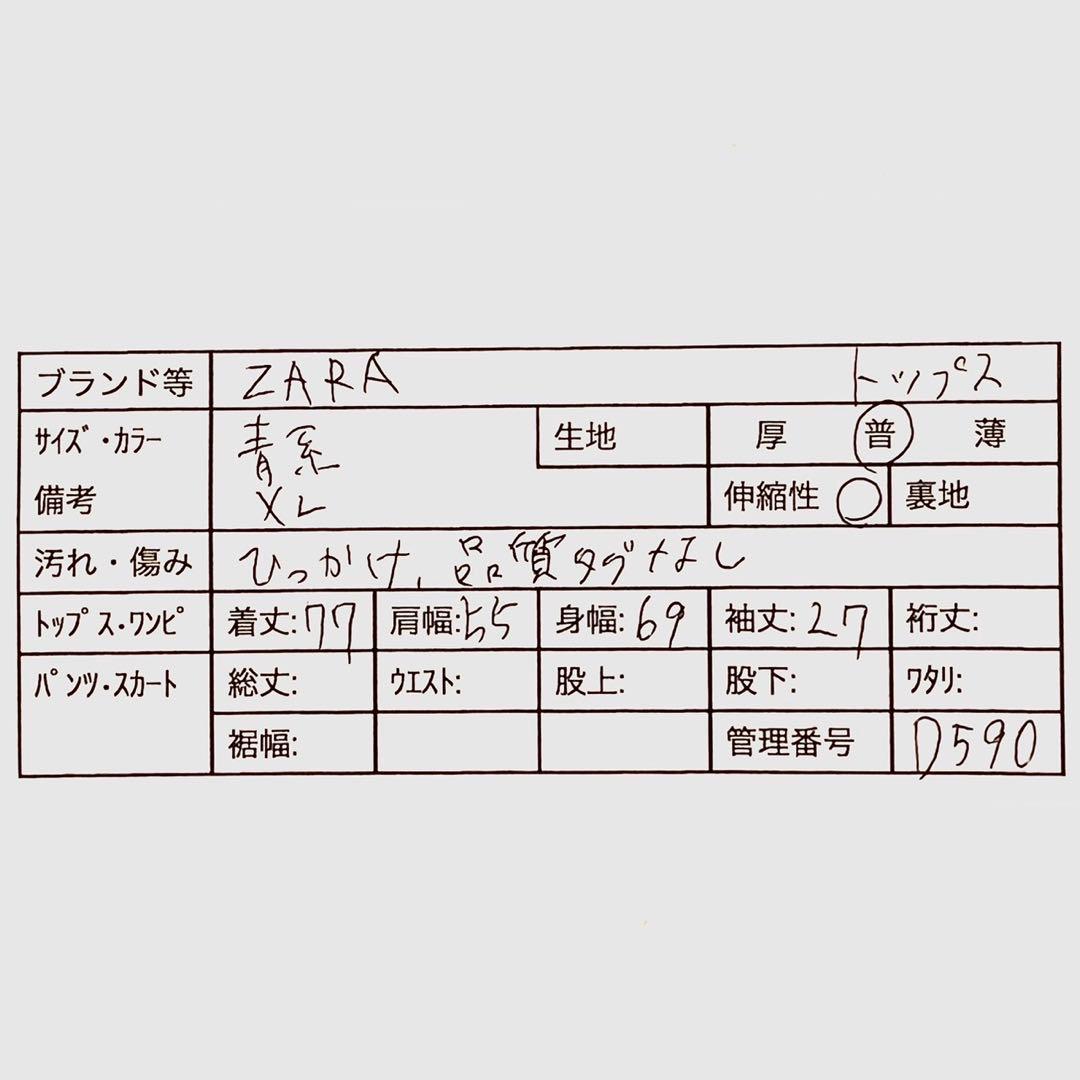 ブランド等 ZARA トップス
サイズ・カラー 青系 生地 厚 普 薄
備考 XL 伸縮性 ○ 裏地
汚れ・傷み ひっかけ、品質タグなし
トップス・ワンピ 着丈:77 肩幅:55 身幅:69 袖丈:27 裄丈:
パンツ・スカート 総丈: ウエスト: 股上: 股下: ワタリ:
裾幅: 管理番号 D590